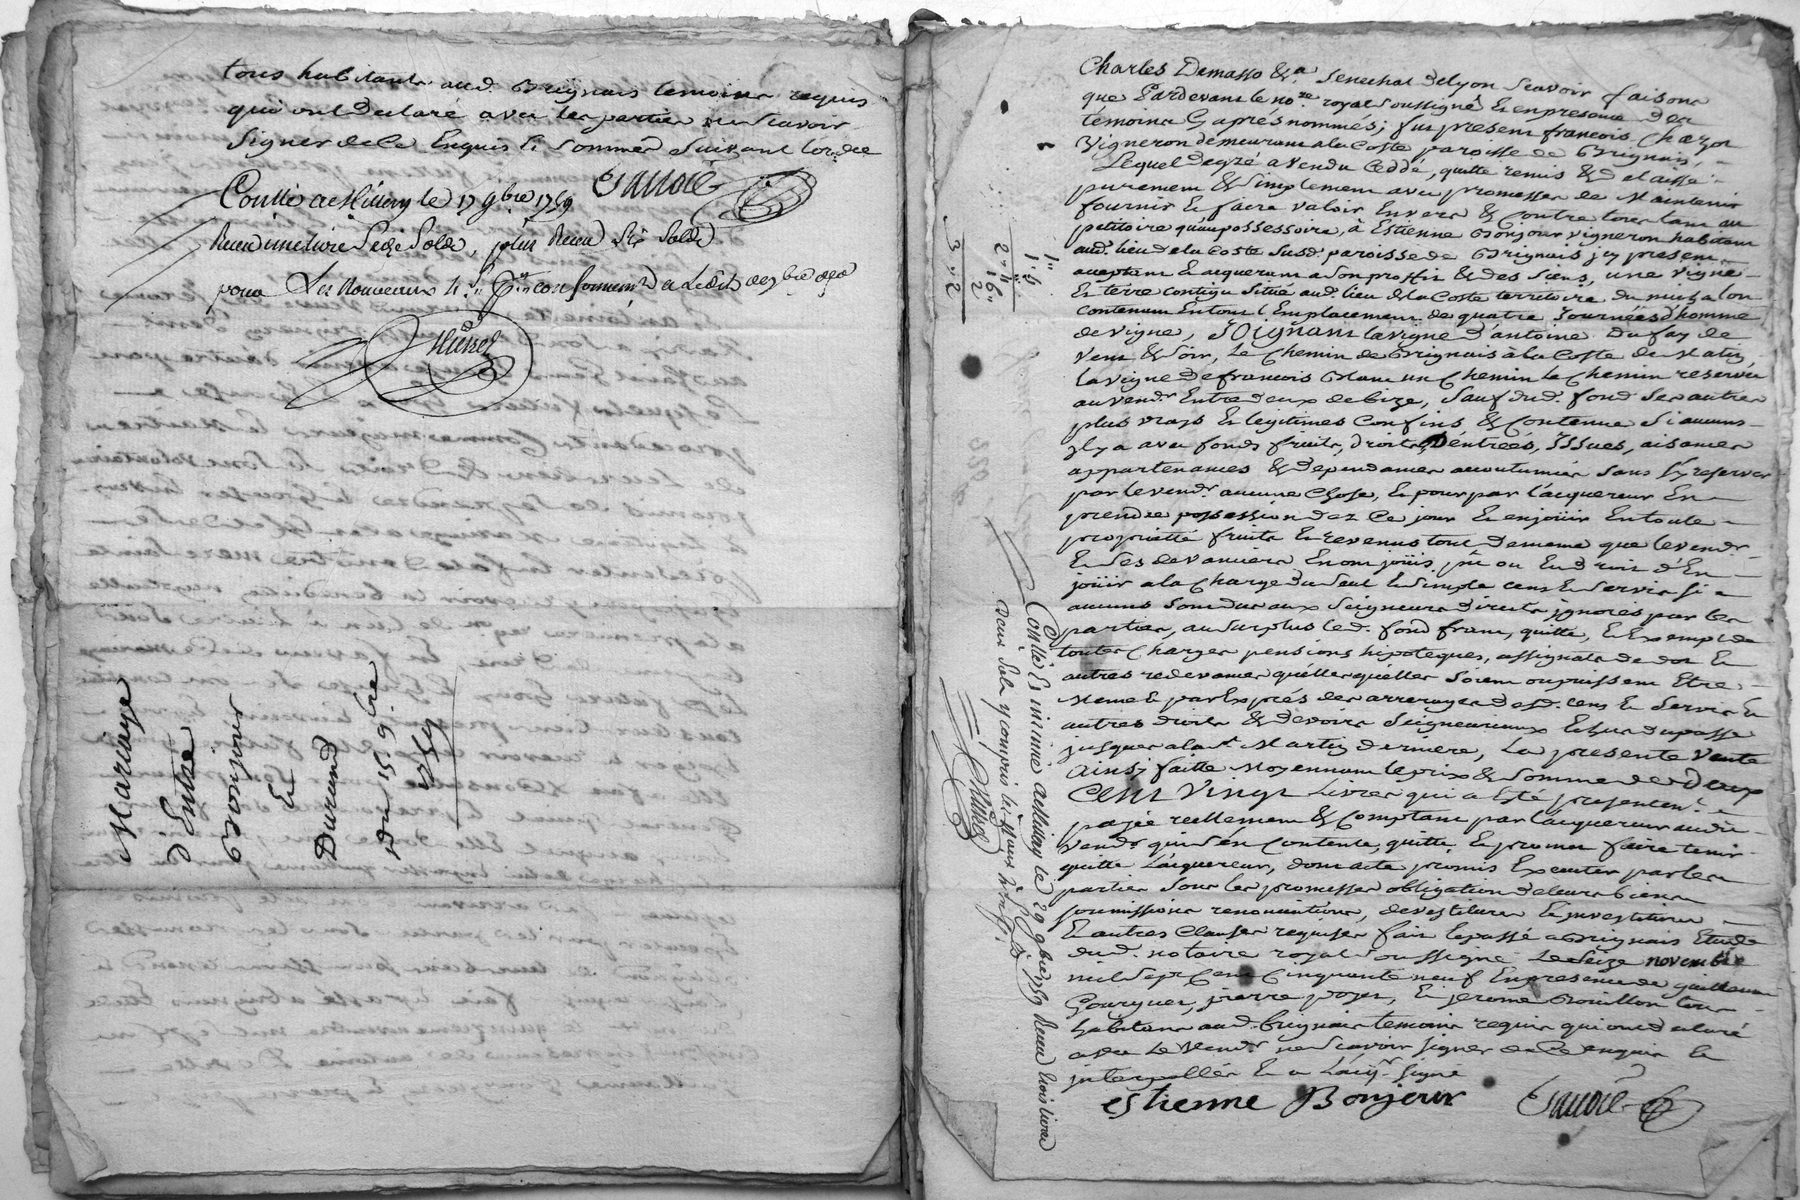 tous habitants aud. Brignais temoins requis
qui ont declaré avec les parties ne scavoir
signer de ce Enquis & sommés suivant l'ordce
Conllé a Millery le 17 9bre 1759
Receu une livre seize sols, plus Receu six sols
pour Les nouveaux conformement a Ledit de 7bre
Mariage
d'Entre
Bonjour
Et
Durand
du 15. 9bre
1759
Charles Demasso &a. Senechal de Lyon scavoir faisons
que Pardevant le nore royal soussigné & en presence des
temoins cy apres nommés; fut present francois Chazot
Vigneron demeurant a la Coste paroisse de Brignais,
Lequel de gré a vendu Ceddé, quitté remis & delaissé
purement & simplement avec promesses de Maintenir
fournir & faire valoir Envers & Contre tous tant au
petitoire qu'au possessoire, à Estienne Bonjour vigneron habitant
aud. lieu de la Coste susd. paroisse de Brignais icy present
acceptant & acquerant a son proffit & des siens, une vigne
Et terre contigu situé aud. lieu de la Coste territoire du
contenant En tout l'Emplacement de quatre Journées d'homme
de vigne, Joignant la vigne d'antoine Dufay de
vent & soir, Le Chemin de Brignais à la Coste de Matin,
la vigne de francois Blanc un Chemin le Chemin reservée
au vendr. Entre deux de bize, sauf dud. fond ses autres
plus vrays & legitimes Confins & Contenue si aucuns
il y a avec fonds fruits, droits, D'éntrées, Issues, aisances
appartenances & dependances accoutumées sans s'y reserver
par le vendr. aucune Chose, & pour par l'acquereur En
prendre possession dez Ce jour & en joüir En toute
proprieté fruits & revenus tout de meme que le vendr.
& ses devanciers En ont joüis, pu ou Eu droit d'En
joüir a la Charge du seul & simple cens & servis si
aucuns sont dus aux Seigneurs directs ignorés par les
parties, au surplus led. fond franc, quitte, & Exempt de
toutes Charges pensions hipoteques, assignats de dot &
autres redevances quelles quélles soient ou puissent Etre
Meme & par Exprés des arrerages desd. cens & servis &
autres droits & devoirs Seigneuriaux Echus du passé
jusques a la st. Martin derniere, La presente vente
Ainsi faitte Moyennant le prix & somme de Deux
Cent Vingt Livres qui a Esté presentent.
payée reellement & Comptant par l'acquereur audit
vendr. qui s'en Contente, quitte, & promet faire tenir
quitte L'acquereur, dont acte promis Executer par les
parties sous les promesses obligation de leurs biens
soumissions renonciations, devestitures & investitures
& autres Clauses requises fait & passé a Brignais Etude
dud. notaire royal soussigné Le seize novembre
mil sept Cent Cinquante neuf En presence de guillaume
Gourguet, pierre poyet, & jerome Bouillon tous
habitans aud. brignais temoins requis qui ont declaré
avec Le Vendr. ne scavoir signer de Ce enquis &
interpellés & a L'acqr. signé
estienne Bonjour
Conllé Et insinué a Millery le 29 9bre 1759 Receu trois livres
Deux sols y compris les